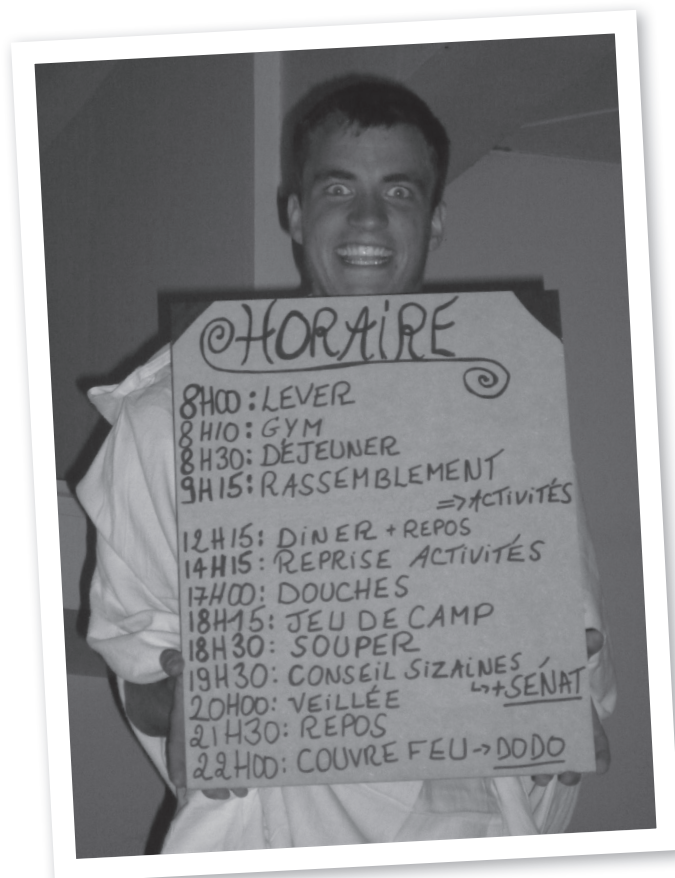 HORAiRE
8H00 : LEVER
8H10 : GYM
8H30 : DÉJEUNER
9H15 : RASSEMBLEMENT
=> ACTiViTÉS
12H15 : DiNER + REPOS
14H15 : REPRiSE ACTiViTÉS
17H00 : DOUCHES
18H15 : JEU DE CAMP
18H30 : SOUPER
19H30 : CONSEiL SiZAiNES
↳ + SÉNAT
20H00 : VEiLLÉE
21H30 : REPOS
22H00 : COUVRE FEU -> DODO